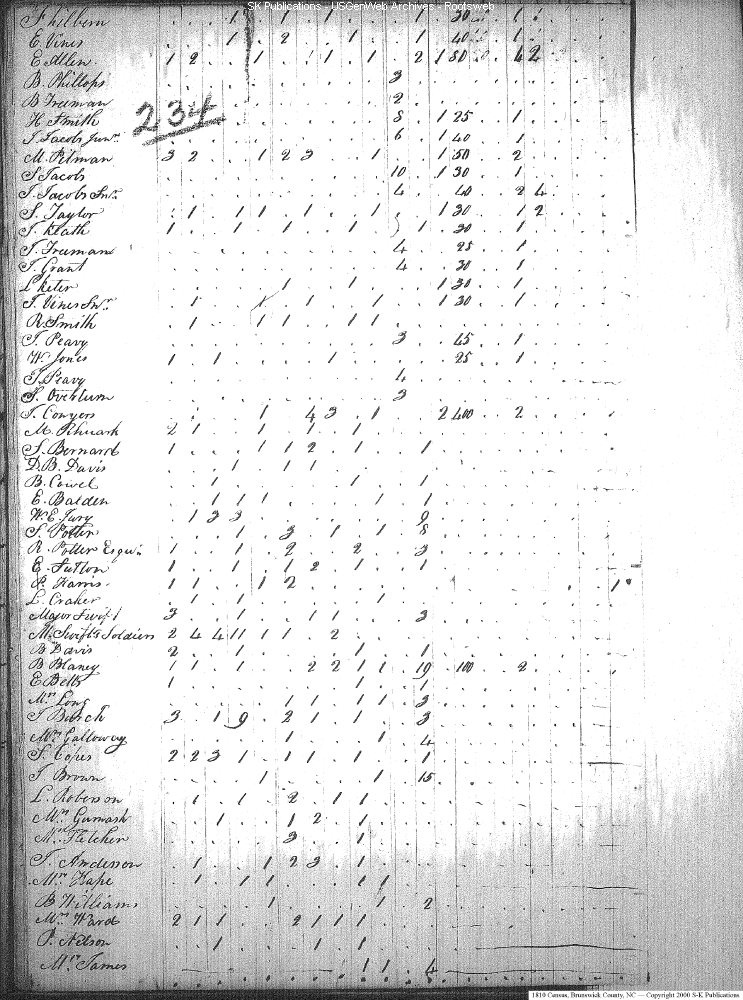 SK Publications - USGenWeb Archives - Rootsweb
E. Vines 1 2 1 1 1 40 1
E Allen 1 2 1 1 1 2 1 80 4 2
B. Phillops 3
B Freeman 2
234
H Smith 8 1 25 1
J Jacobs Junr. 6 1 40 1
M. Pitman 3 2 1 2 3 1 1 50 2
S Jacobs 10 1 30 1
J. Jacobs Snr. 4 40 2 4
S. Taylor 1 1 1 1 1 1 30 1 2
1 1 1 1 1 30 1
J. Freeman 4 25 1
J. Grant 4 30 1
L Keter 1 1 1 30 1
J. Vines Snr. 1 1 1 1 1 30 1
R. Smith 1 1 1 1 1
J. Peavy 3 45 1
W. Jones 1 1 1 25 1
J. Peavy 4
3
J. Conyers 1 4 3 1 2 400 2
2 1 1 1 1
J. Bernard 1 1 1 2 1 1
D. B. Davis 1 1 1
B. Cowel 1 1 1 1
E. Balden 1 1 1 1 1
W. E. Jury 1 3 3 9
J. Potter 1 3 1 1 8
R. Potter Esqur. 1 1 2 2 3
E. Sutton 1 1 1 2 1 1
P. Harris 1 1 1 2 1
L. Craker 1 1 1
Major Swift 3 1 1 1 3
M. Swifts Soldiers 2 4 4 11 1 1 2
B Davis 2 1 1 1
B Blaney 1 1 1 2 2 1 1 19 100 2
E Betts 1 1 1
Mrs. Long 1 1 1 1 3
J Burch 3 1 9 2 1 1 3
Mrs Galloway 1 1 4
S. Copes 2 2 3 1 1 1 1 1
J Brown 1 1 15
L. Roberson 1 1 2 1 1
Mrs. Gamash 1 1 2 1
Mrs. Fletcher 3 1
J. Anderson 1 1 2 3 1
1 1 1 1 1
B Williams 1 1 2
Mrs. Ward 2 1 1 2 1 1 1
P. Nelson 1 1 1
Mr. James 1 1 4
1810 Census, Brunswick County, NC — Copyright 2000 S-K Publications